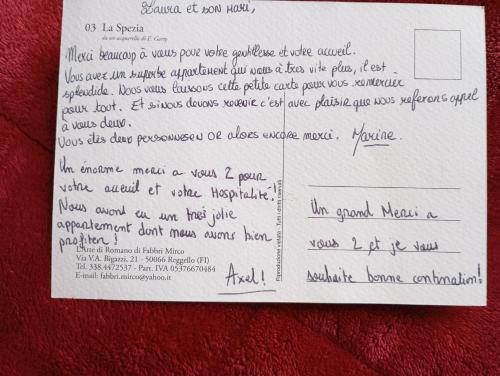 Laura et son mari,
03 La Spezia
da un acquerello di F. Gamy
Merci beaucoup à vous pour votre gentillesse et votre accueil.
Vous avez un superbe appartement qui nous à tres vite plus, il est
splendide. Nous vous laissons cette petite carte pour vous remercier
pour tout. Et si nous devons revenir c'est avec plaisir que nous referons appel
à vous deux.
Vous êtes deux personnes en or alors encore merci. Marine.
Un énorme merci a vous 2 pour
votre acueil et votre Hospitalité!
Nous avont eu un très jolie
appartement dont nous avons bien
profiter!
Axel!
L'Arte di Romano di Fabbri Mirco
Via V.A. Bigazzi, 21 - 50066 Reggello (FI)
Tel. 338.4472537 - Part. IVA 05376670484
E-mail: fabbri.mirco@yahoo.it
Riproduzione vietata - Tutti i diritti riservati
Un grand Merci a
vous 2 et je vous
souhaite bonne continuation!